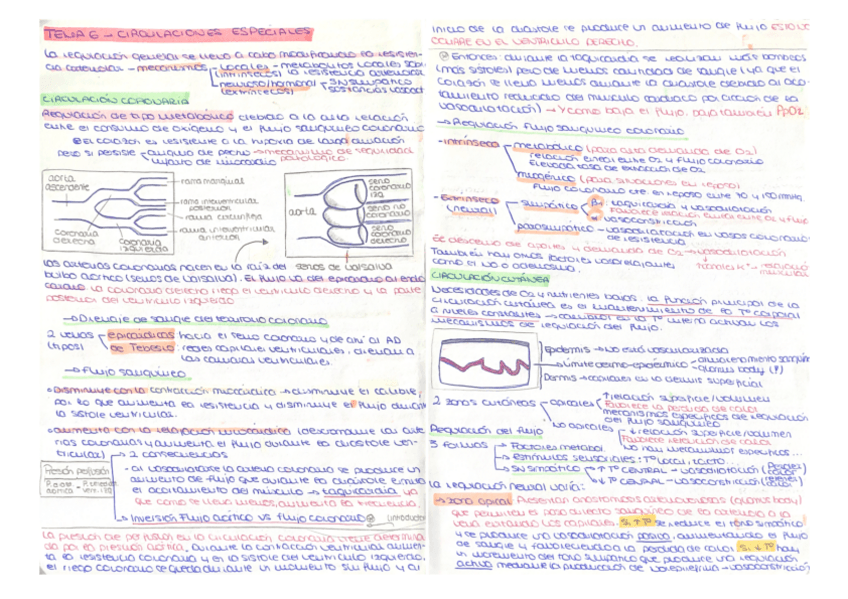 TEMA 6 - CIRCULACIONES ESPECIALES
La regulación general se lleva a cabo modificando la resisten-
cia arteriolas - mecanismos - locales - metabolitos locales
(intrínsecos) la resistencia arteriolar
neuronal/hormonal - SN simpático
(extrínsecos)
CIRCULACIÓN CORONARIA
Regulación de tipo metabólico debido a la alta relación
entre el consumo de oxígeno y el flujo sanguíneo coronario
El corazón es resistente a la hipoxia de larga duración
pero si persiste - angina de pecho - mecanismo de seguridad
infarto de miocardio patológico
aorta ascendente
coronaria derecha
coronaria izquierda
rama marginal
rama interventricular posterior
rama circunfleja
rama interventricular anterior
aorta
seno coronario izq
seno no coronario
seno coronario derecho
senos de valsalva
Las arterias coronarias nacen en la raíz del
bulbo aórtico (senos de valsalva). El flujo va del epicardio al endo
cardio. La coronaria derecha riega el ventrículo derecho y la parte
posterior del ventrículo izquierdo
→ Drenaje de sangre del territorio coronario
2 venas epicárdicas hacia el seno coronario y de ahí al AD
(tipos) de Tebesio: recogen capilares ventriculares, drenan a
las cámaras ventriculares.
→ Flujo sanguíneo
• Disminuye con la contracción miocárdica → disminuye el calibre,
por lo que aumenta la resistencia y disminuye el flujo durante
la sístole ventricular.
• Aumenta con la relajación miocárdica (descomprime las arte
rias coronarias y aumenta el flujo durante la diástole ven-
tricular)
→ 2 consecuencias
Presión perfusión
- Al vasodilatarse la arteria coronaria se produce un
aumento de flujo que durante la diástole limita
el acortamiento del músculo → taquicardia ya
que como se llena menos, aumenta la frecuencia.
→ Inversión flujo aórtico vs flujo coronario
La presión de perfusión en la circulación coronaria viene determina
da por la presión aórtica, durante la contracción ventricular aumen-
ta la resistencia coronaria y en la sístole del ventrículo izquierdo,
el riego coronario se queda durante un momento sin flujo y al
inicio de la diástole se produce un aumento de flujo. ESTO NO
OCURRE EN EL VENTRÍCULO DERECHO.
Entonces: durante la taquicardia se realizan más bombeos
(más sístoles) pero de menos cantidad de sangre (ya que el
corazón se llena menos durante la diástole debido al aco-
rtamiento reducido del músculo cardíaco por acción de la
vasodilatación) → Y como baja el flujo, baja también PpO2
→ Regulación flujo sanguíneo coronario
- Intrínseco metabólico (para alta demanda de O2)
relación lineal entre O2 y flujo coronario
Elevada tasa de extracción de O2
miogénico (para situaciones en reposo)
Flujo coronario cte en reposo entre 70 y 150 mmHg.
- Extrínseco simpático β1 taquicardia y vasodilatación
(neural)
α vasoconstricción
parasimpático - vasodilatación en vasos coronarios
de resistencia
El descenso de aportes y demanda de O2 → vasodilatación
También hay otros factores vasorelajantes
como el NO o adenosina.
CIRCULACIÓN CUTÁNEA
Necesidades de O2 y nutrientes bajos. La función principal de la
circulación cutánea es el mantenimiento de la Tª corporal
a niveles constantes → cambios en la Tª interna activan los
mecanismos de regulación del flujo.
Epidermis → No está vascularizada
Límite dermo-epidérmico - glomus body
Dermis → capilares en la dermis superficial
2 zonas cutáneas apicales ↑ relación superficie/volumen
Favorece la pérdida de calor
mecanismos específicos de regulación
del flujo sanguíneo
no apicales ↓ relación superficie/volumen
Favorece retención de calor
No hay mecanismos específicos...
Regulación del flujo
3 formas → Factores metabol.
→ Estímulos sensoriales: Tª local, tacto...
→ SN simpático ↑ Tª CENTRAL - vasodilatación
↓ Tª CENTRAL - vasoconstricción
La regulación neural varía:
→ zona apical: Presentan anastomosis arteriovenosas (glomus body)
que permiten el paso directo sanguíneo de la arteriola a la
vena evitando los capilares. Si ↑ Tª se reduce el tono simpático
y se produce una vasodilatación pasiva, aumentando el flujo
de sangre y favoreciendo la pérdida de calor. Si ↓ Tª hay
un incremento del tono simpático que produce una regulación
activa mediante la producción de norepinefrina → vasoconstricción